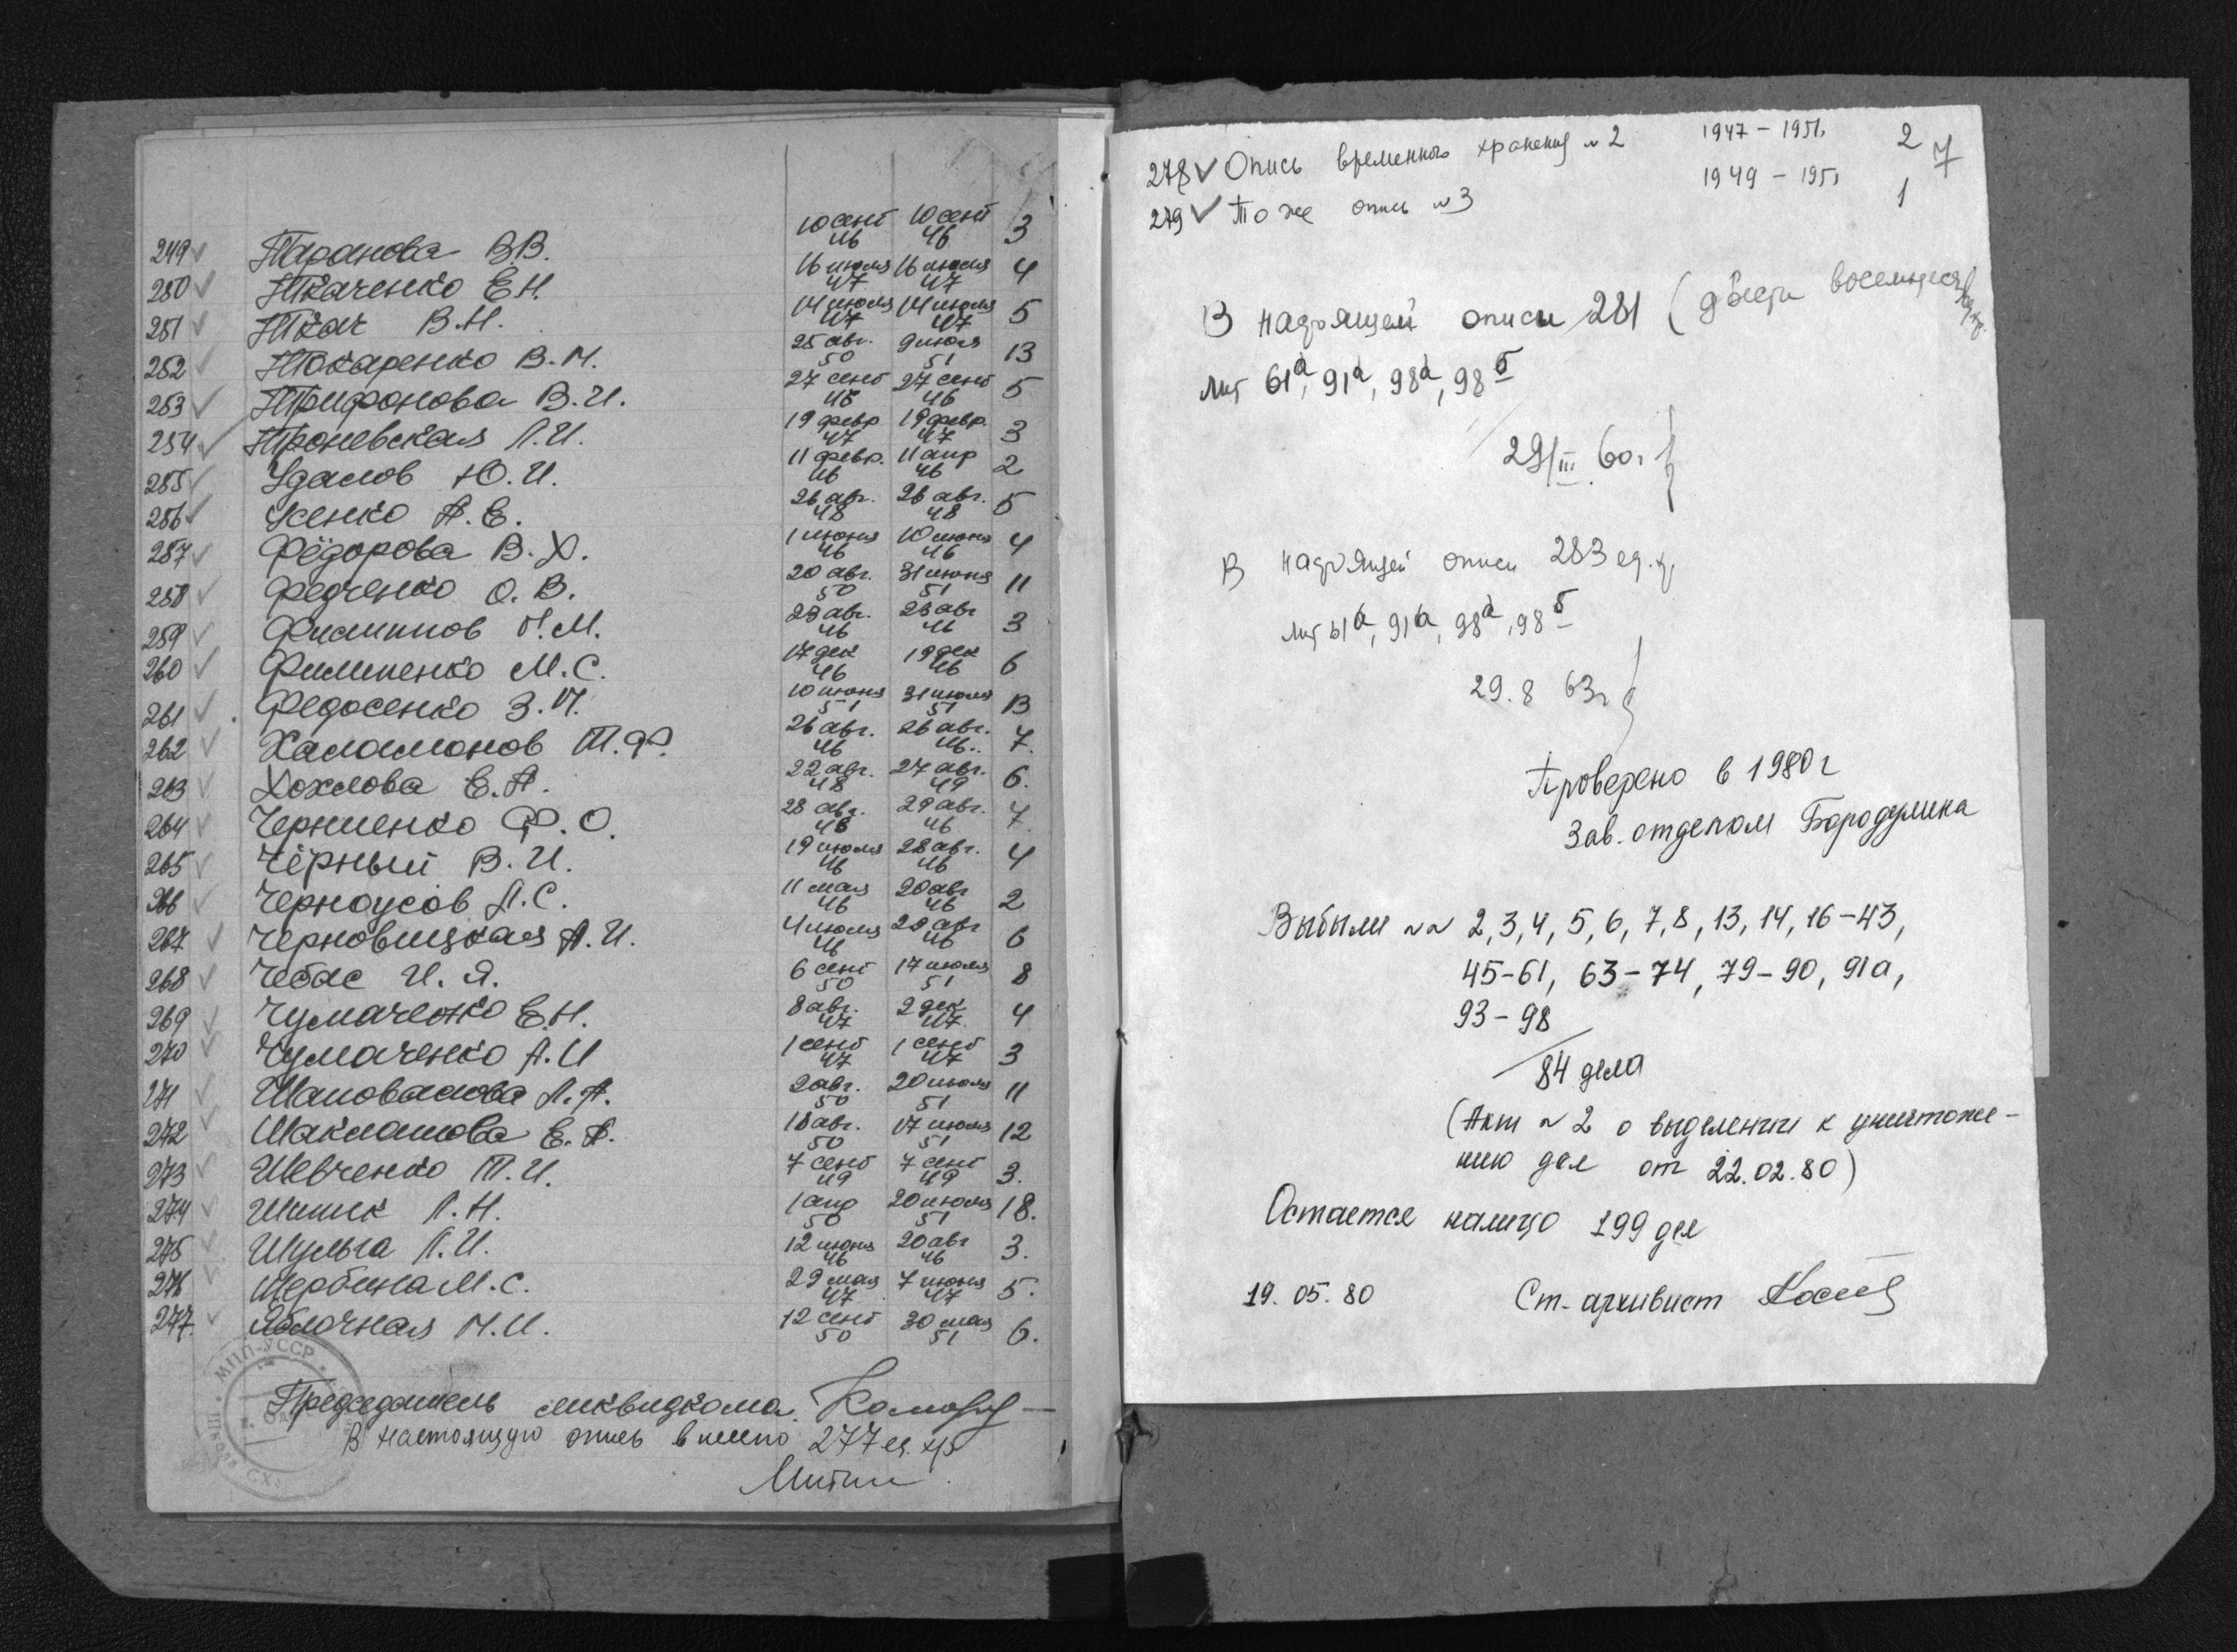 249 ✓ Таранова В.В. 10 сент 46 10 сент 46 3
250 ✓ Ткаченко Е.Н. 16 июля 47 16 июля 47 4
251 ✓ Ткач В.Н. 14 июля 47 14 июля 47 5
252 ✓ Токаренко В.М. 25 авг. 50 9 июля 51 13
253 ✓ Трифонова В.И. 27 сент 45 27 сент 46 5
254 ✓ Троневская Л.И. 19 февр 47 19 февр. 47 3
255 ✓ Удалов Ю.И. 11 февр. 46 11 апр 46 2
256 ✓ Усенко А.Е. 26 авг. 48 26 авг. 48 5
257 ✓ Фёдорова В.Х. 1 июня 46 10 июня 46 4
258 ✓ Федченко О.В. 20 авг. 50 31 июня 51 11
259 ✓ Филиппов М. 28 авг. 46 28 авг 46 3
260 ✓ Филипенко М.С. 17 дек 46 19 дек 46 6
261 ✓ Федосенко З.П. 10 июня 51 31 июля 51 13
262 ✓ Халамонов Т.Ф. 26 авг. 46 26 авг. 46. 7.
263 ✓ Хохлова Е.А. 22 авг. 48 27 авг. 49 6.
264 ✓ Черниенко Ф.О. 28 авг. 46 29 авг. 46 7.
265 ✓ Чёрный В.И. 19 июля 46 28 авг. 46 4
266 ✓ Черноусов Л.С. 11 мая 46 20 авг 46 2
267 ✓ Черновицкая А.И. 4 июля 46 20 авг 46 6
268 ✓ Чебас И.Я. 6 сент 50 17 июля 51 8
269 ✓ Чумаченко Е.Н. 8 авг. 47 2 дек 47. 4
270 ✓ Чумаченко А.И 1 сент 47 1 сент 47 3
271 ✓ Шаповалова Л.А. 2 авг. 50 20 июля 51 11
272 ✓ Шакламова Е.А. 18 авг. 50 17 июля 51 12
273 ✓ Шевченко Т.И. 7 сент 49 7 сент 49 3.
274 ✓ Шишек Л.Н. 1 апр 50 20 июля 51 18.
275 ✓ Шульга Л.И. 12 июня 46 20 авг 46 3.
276 ✓ Щербина М.С. 29 мая 47 7 июня 47 5.
277. ✓ Яблочная Н.И. 12 сент 50 30 мая 51 6.
МПП-УССР
Председатель ликвидкома
В настоящую опись внесено 277 ед. хр
278 ✓ Опись временного хранения №2 1947 - 1951. 2
7
279 ✓ То же опись №3 1949 - 1951 1
В настоящей описи 281 (двести восемьдесят
лит 61а, 91а, 98а, 98б
29/III 60г
В настоящей описи 283 ед. х.
лит 61а, 91а, 98а, 98б
29.8 63г
Проверено в 1980 г
Зав. отделом Бородулина
Выбыли №№ 2, 3, 4, 5, 6, 7, 8, 13, 14, 16-43,
45-61, 63-74, 79-90, 91а,
93-98
84 дела
(Акт №2 о выделении к уничтоже-
нию дел от 22.02.80)
Остается налицо 199 дел
19.05.80 Ст. архивист